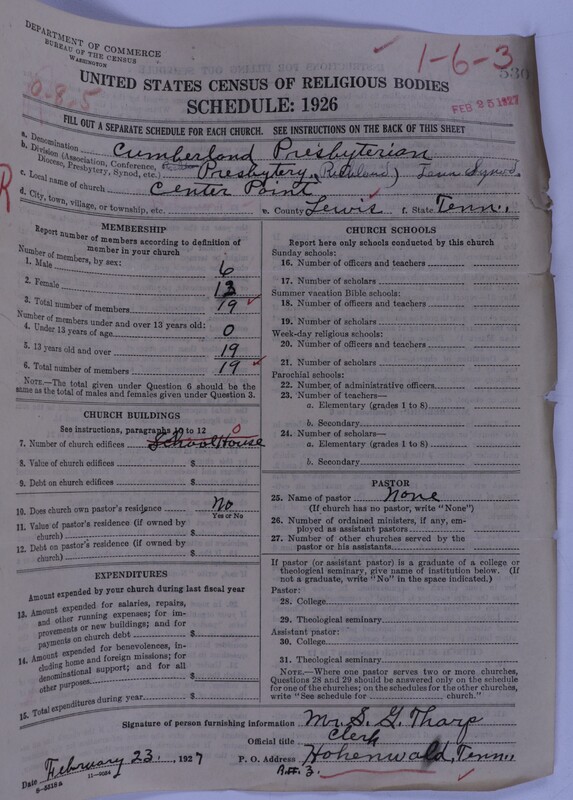 DEPARTMENT OF COMMERCE
BUREAU OF THE CENSUS
WASHINGTON
1-6-3
530
0.8.5
FEB 25 1927
UNITED STATES CENSUS OF RELIGIOUS BODIES
SCHEDULE: 1926
FILL OUT A SEPARATE SCHEDULE FOR EACH CHURCH. SEE INSTRUCTIONS ON THE BACK OF THIS SHEET
a. Denomination Cumberland Presbyterian
b. Division (Association, Conference, Diocese, Presbytery, Synod, etc.) Presbytery (Richland) Tenn Synod.
c. Local name of church Center Point
d. City, town, village, or township, etc. e. County Lewis f. State Tenn.
R
MEMBERSHIP
Report number of members according to definition of
member in your church
Number of members, by sex:
1. Male 6
2. Female 13
3. Total number of members 19
Number of members under and over 13 years old:
4. Under 13 years of age 0
5. 13 years old and over 19
6. Total number of members 19
NOTE.—The total given under Question 6 should be the
same as the total of males and females given under Question 3.
CHURCH BUILDINGS
See instructions, paragraphs 10 to 12 0
7. Number of church edifices School House
8. Value of church edifices $
9. Debt on church edifices $
10. Does church own pastor's residence No
Yes or No
11. Value of pastor's residence (if owned by
church) $
12. Debt on pastor's residence (if owned by
church) $
EXPENDITURES
Amount expended by your church during last fiscal year
13. Amount expended for salaries, repairs,
and other running expenses; for im-
provements or new buildings; and for
payments on church debt $
14. Amount expended for benevolences, in-
cluding home and foreign missions; for
denominational support; and for all
other purposes $
15. Total expenditures during year $
CHURCH SCHOOLS
Report here only schools conducted by this church
Sunday schools:
16. Number of officers and teachers
17. Number of scholars
Summer vacation Bible schools:
18. Number of officers and teachers
19. Number of scholars
Week-day religious schools:
20. Number of officers and teachers
21. Number of scholars
Parochial schools:
22. Number of administrative officers
23. Number of teachers—
a. Elementary (grades 1 to 8)
b. Secondary
24. Number of scholars—
a. Elementary (grades 1 to 8)
b. Secondary
PASTOR
25. Name of pastor None
(If church has no pastor, write "None")
26. Number of ordained ministers, if any, em-
ployed as assistant pastors
27. Number of other churches served by the
pastor or his assistants
If pastor (or assistant pastor) is a graduate of a college or
theological seminary, give name of institution below. (If
not a graduate, write "No" in the space indicated.)
Pastor:
28. College
29. Theological seminary
Assistant pastor:
30. College
31. Theological seminary
NOTE.—Where one pastor serves two or more churches,
Questions 28 and 29 should be answered only on the schedule
for one of the churches; on the schedules for the other churches,
write "See schedule for church."
Signature of person furnishing information Mr. S. G. Tharp
Official title Clerk
Date February 23. 1927 P. O. Address Hohenwald, Tenn.
8-5218a 11-9024 Rt. 3.